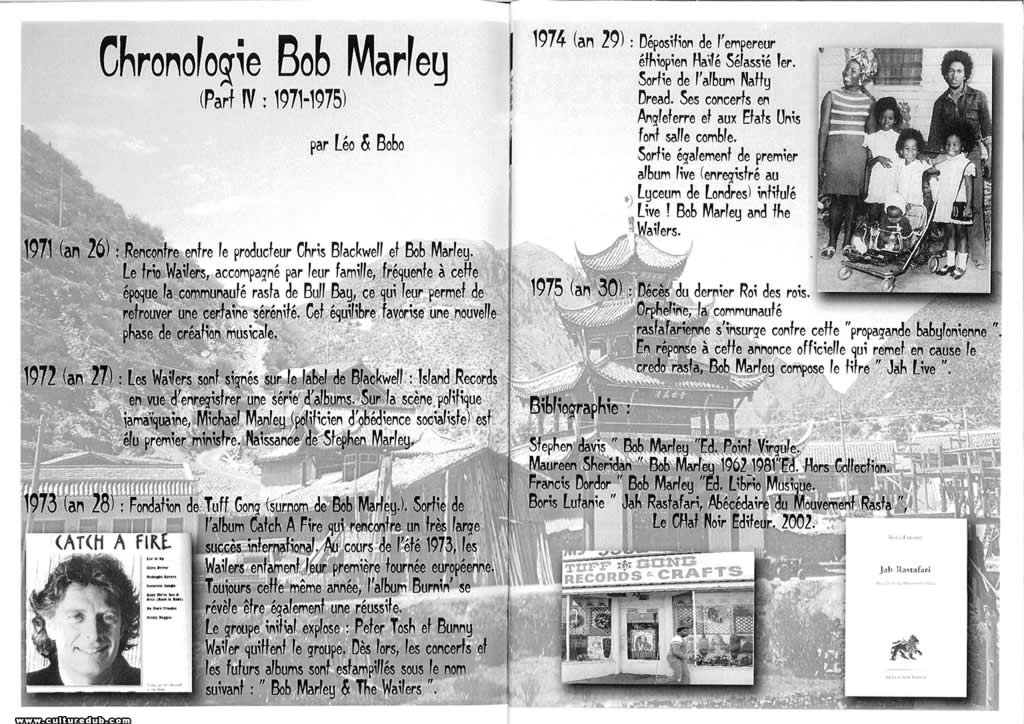 Chronologie Bob Marley
(Part IV : 1971-1975)
par Léo & Bobo
1971 (an 26) : Rencontre entre le producteur Chris Blackwell et Bob Marley.
Le trio Wailers, accompagné par leur famille, fréquente à cette
époque la communauté rasta de Bull Bay, ce qui leur permet de
retrouver une certaine sérénité. Cet équilibre favorise une nouvelle
phase de création musicale.
1972 (an 27) : Les Wailers sont signés sur le label de Blackwell : Island Records
en vue d'enregistrer une série d'albums. Sur la scène politique
jamaïquaine, Michael Manley (politicien d'obédience socialiste) est
élu premier ministre. Naissance de Stephen Marley.
1973 (an 28) : Fondation de Tuff Gong (surnom de Bob Marley.). Sortie de
l'album Catch A Fire qui rencontre un très large
succès international. Au cours de l'été 1973, les
Wailers entament leur première tournée européenne.
Toujours cette même année, l'album Burnin' se
révèle être également une réussite.
Le groupe initial explose : Peter Tosh et Bunny
Wailer quittent le groupe. Dès lors, les concerts et
les futurs albums sont estampillés sous le nom
suivant : " Bob Marley & The Wailers ".
CATCH A FIRE
1974 (an 29) : Déposition de l'empereur
éthiopien Haïlé Sélassié Ier.
Sortie de l'album Natty
Dread. Ses concerts en
Angleterre et aux Etats Unis
font salle comble.
Sortie également de premier
album live (enregistré au
Lyceum de Londres) intitulé
Live ! Bob Marley and the
Wailers.
1975 (an 30) : Décès du dernier Roi des rois.
Orpheline, la communauté
rastafarienne s'insurge contre cette "propagande babylonienne ".
En réponse à cette annonce officielle qui remet en cause le
credo rasta, Bob Marley compose le titre " Jah Live ".
Bibliographie :
Stephen davis " Bob Marley "Ed. Point Virgule.
Maureen Sheridan " Bob Marley 1962 1981"Ed. Hors Collection.
Francis Dordor " Bob Marley "Ed. Librio Musique.
Boris Lutanie " Jah Rastafari, Abécédaire du Mouvement Rasta ",
Le CHat Noir Editeur. 2002.
TUFF GONG
RECORDS & CRAFTS
Jah Rastafari
www.culturedub.com